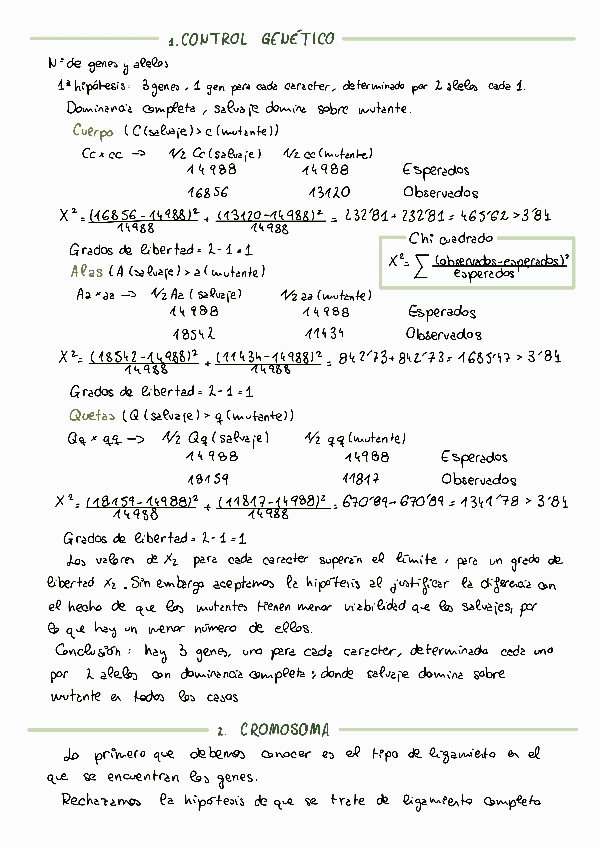 1. CONTROL GENÉTICO
Nº de genes y alelos
1ª hipótesis: 3 genes, 1 gen para cada caracter, determinado por 2 alelos cada 1.
Dominancia completa, salvaje domina sobre mutante.
Cuerpo (C (salvaje) > c (mutante))
Cc × cc → 1/2 Cc (salvaje) 1/2 cc (mutante)
14988 14988 Esperados
16856 13120 Observados
X² = (16856-14988)²/14988 + (13120-14988)²/14988 = 232'81 + 232'81 = 465'62 > 3'84
Grados de libertad = 2-1 = 1
Chi cuadrado
X² = ∑ (observados-esperados)²/esperados
Alas (A (salvaje) > a (mutante)
Aa × aa → 1/2 Aa (salvaje) 1/2 aa (mutante)
14988 14988 Esperados
18542 11434 Observados
X² = (18542-14988)²/14988 + (11434-14988)²/14988 = 842'73 + 842'73 = 1685'47 > 3'84
Grados de libertad = 2-1 = 1
Quetas (Q (salvaje) > q (mutante))
Qq × qq → 1/2 Qq (salvaje) 1/2 qq (mutante)
14988 14988 Esperados
18159 11817 Observados
X² = (18159-14988)²/14988 + (11817-14988)²/14988 = 670'89 + 670'89 = 1341'78 > 3'84
Grados de libertad = 2-1 = 1
Los valores de X2 para cada caracter superan el límite, para un grado de
libertad X2. Sin embargo aceptamos la hipótesis al justificar la diferencia con
el hecho de que los mutantes tienen menor viabilidad que los salvajes, por
lo que hay un menor número de ellos.
Conclusión: hay 3 genes, uno para cada caracter, determinado cada uno
por 2 alelos con dominancia completa; donde salvaje domina sobre
mutante en todos los casos
2. CROMOSOMA
Lo primero que debemos conocer es el tipo de ligamiento en el
que se encuentran los genes.
Rechazamos la hipótesis de que se trate de ligamiento completo